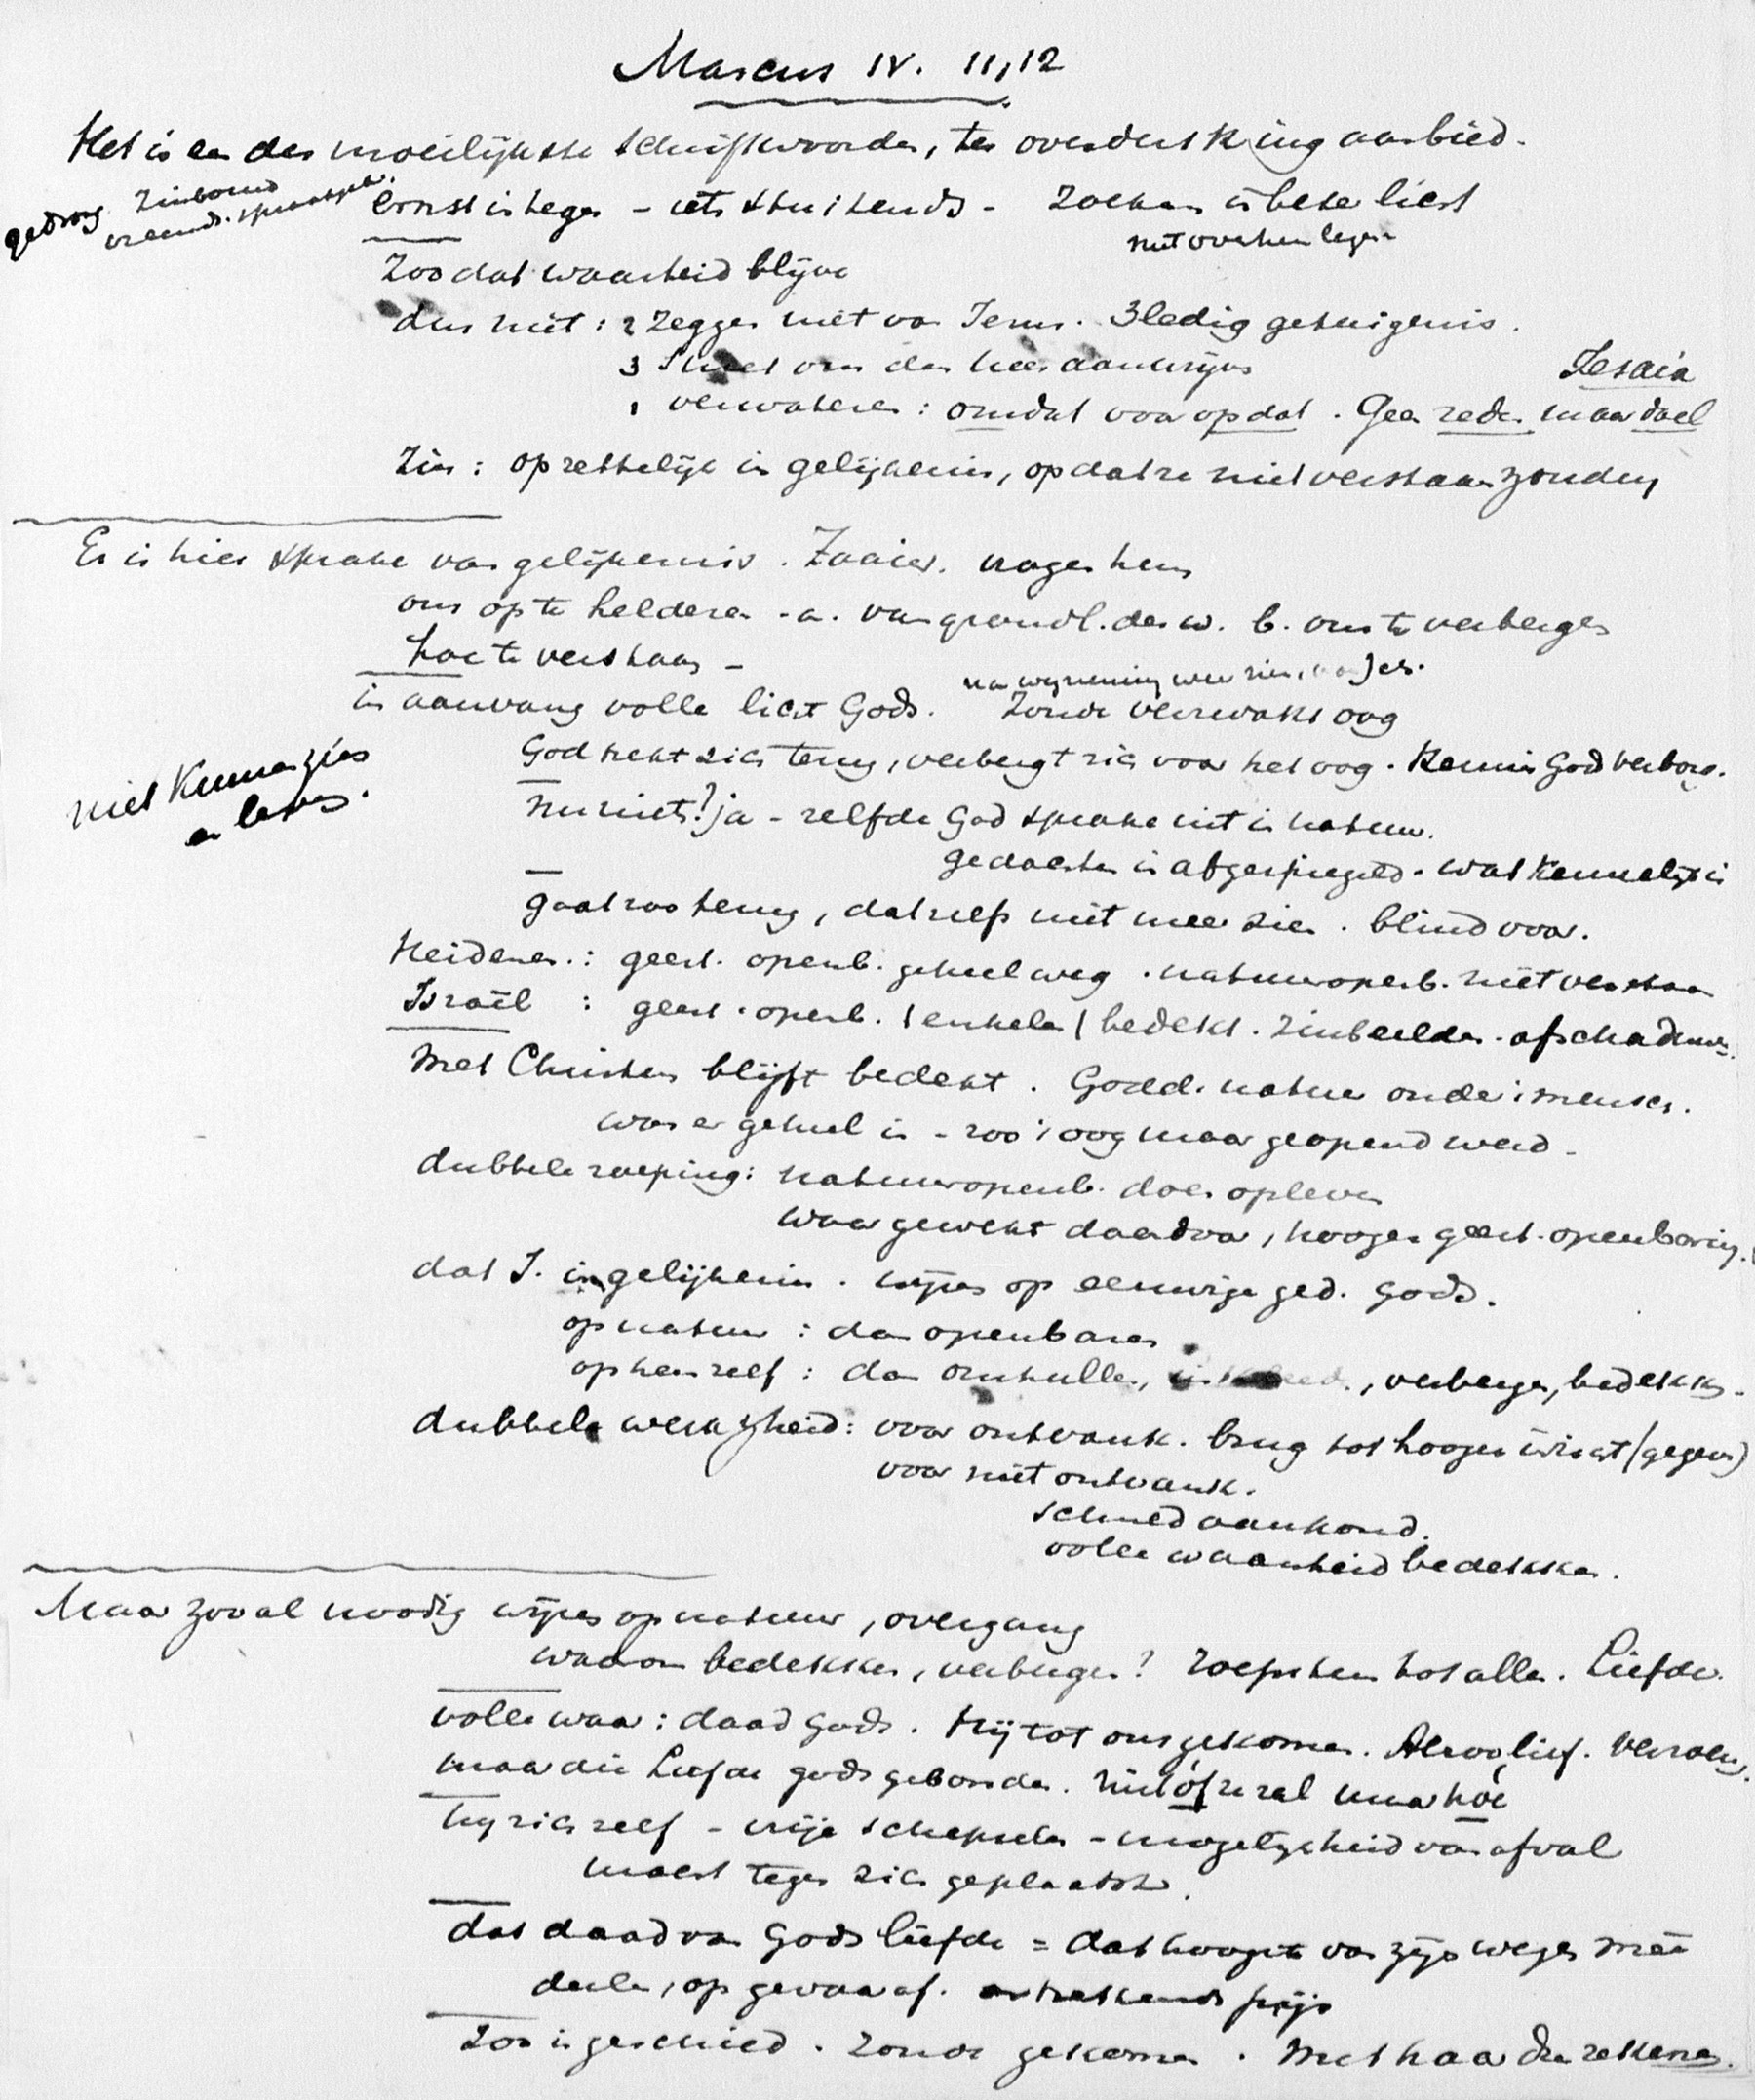 Marcus IV. 11,12
Het is een der moeilijkste schriftwoorden, ter overdenking aanbied.
gedrong zinbouw
vreemds. spraakgebr.
ernst in tegen - iets stuitends - Zoeken is beter licht
niet overheen lezen
Zoo dat waarheid blijve
dus niet: 2 zeggen niet van Jezus. 3ledig getuigenis.
3 van den Heer aanwrijven
Jesaia
1 verwateren: omdat voor opdat. Geen reden maar doel
Zin: opzettelijk in gelijkenis, opdat ze niet verstaan zouden
Er is hier sprake van gelijkenis. Zaaier. vragen hem
om op te helderen - a. van grondl. der w. b. om te verbergen
hoe te verstaan -
in aanvang volle licht Gods. Zonde verzwakt oog
niet kunnen zien
en leven.
God trekt zich terug, verbergt zich voor het oog. Kennis God verborg.
nu niets? ja - zelfde God sprake uit in natuur.
gedachten in afgespiegeld. wat kennelijk is
gaat zoo terug, dat zelfs niet meer zien. blind voor.
Heidenen: geest. openb. geheel weg. natuuropenb. niet verstaan
Israël: geest. openb. (enkelen) bedekt. zinbeelden. afschaduw.
Met Christus blijft bedekt. Godd. natuur onder mensch.
was er geheel in - zoo 't oog maar geopend werd -
dubbele roeping: natuuropenb. doen opleven
waar gewekt daardoor, hooger geest. openbaring.
dat J. in gelijkenis. wijzen op eeuwige ged. Gods.
op natuur: dan openbaren
op hen zelf: dan omhullen, , verbergen, bedekken -
dubbele werkzheid: voor ontvank. brug tot hooger inzicht (gegeven)
voor niet ontvank.
volle waarheid bedekken.
Maar zooal noodig wijzen op natuur, overgang
waarom bedekken, verbergen? roept hen tot allen. Liefde.
volle waar: daad Gods. Hij tot ons gekomen. lief.
maar die Liefde Gods gebonden. niet óf ze zal maar hoe
Hij zich zelf - vrije schepselen - mogelijkheid van afval
moest tegen zich geplaatst.
dat daad van Gods liefde = dat hoogste van zijn wezen mee
deelen, op gevaar af. prijs
Zoo is geschied. Zonde gekomen. Met haar dus rekenen.